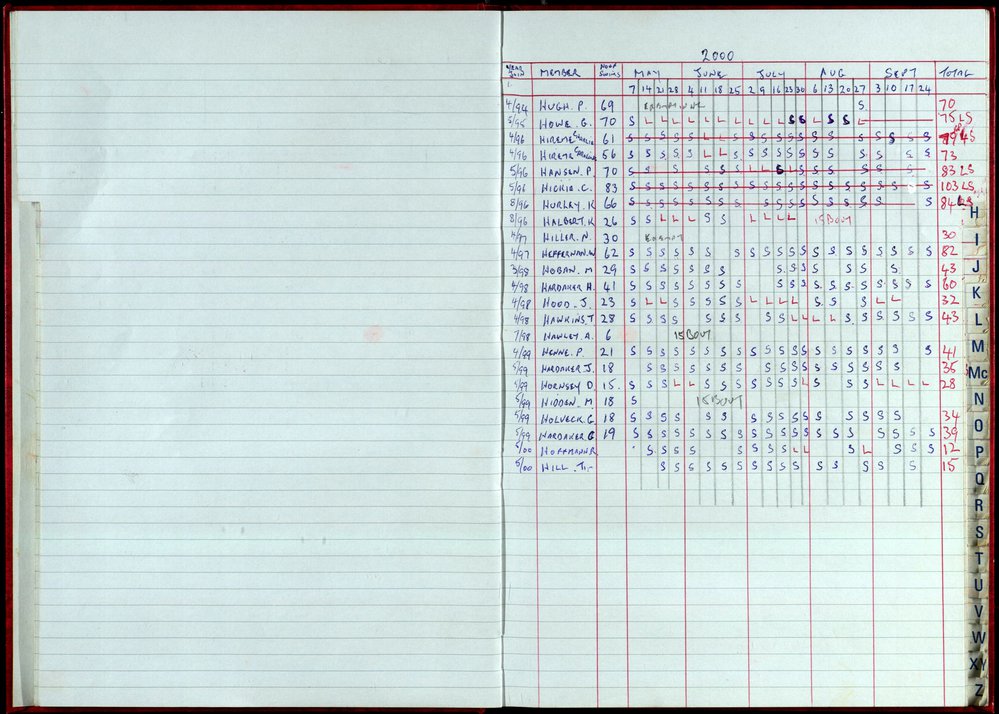 2000
YEAR JOIN MEMBER NO OF SWIMS MAY JUNE JULY AUG SEPT TOTAL
7 14 21 28 4 11 18 25 2 9 16 23 30 6 13 20 27 3 10 17 24
4/94 HUGH. P. 69 S 70
5/95 HOWE. G. 70 S L L L L L L L L L L S S L S S L 75 LS
4/96 61 S S S S S L L S S S S S S S S S S S S S
4/96 56 S S S S S L L S S S S S S S S S S S S 73
5/96 HANSEN. P. 70 83 LS
5/96 HICKIE. C. 83 S S S S S S S S S S S S S S S S S S S S 103 LS
8/96 HURLEY. K 66 S S S S S S S S S S S S S S S S S S S 84 LS
8/96 HALBERT. K 26 S S L L L S S L L L L 15 BOUT
4/97 HILLER. N. 30 30
4/97 HEFFERNAN. W 62 S S S S S S S S S S S S S S S S S S S S 82
3/98 HOGAN. M 29 S S S S S S S S S S S S S S 43
4/98 HARDAKER H. 41 S S S S S S S S S S S S S S S S S S S 60
4/98 HOOD. J. 23 S L L S S S S S L L L L S S S L L 32
4/98 HAWKINS. T 28 S S S S S S S S S L L L L S S S S S S 43
7/98 HAWLEY. A. 6 15 BOUT
4/99 HENNE. P. 21 S S S S S S S S S S S S S S S S S S S S 41
5/99 HARDAKER J. 18 S S S S S S S S S S S S S S S S S 35
5/99 HORNSEY D. 15. S S S L L S S S S S S S L S S S L L L L 28
5/99 HIDDEN. M 18 S 15 BOUT
5/99 HOLVECK. G. 18 S S S S S S S S S S S S S S S S 34
5/99 HARDAKER G 19 S S S S S S S S S S S S S S S S S S S S 39
5/00 HOFFMANN R S S S S S S S S L L S L S S S 12
5/00 HILL. S S S S S S S S S S S S S S S 15
H
I
J
K
L
M
Mc
N
O
P
Q
R
S
T
U
V
W
XY
Z